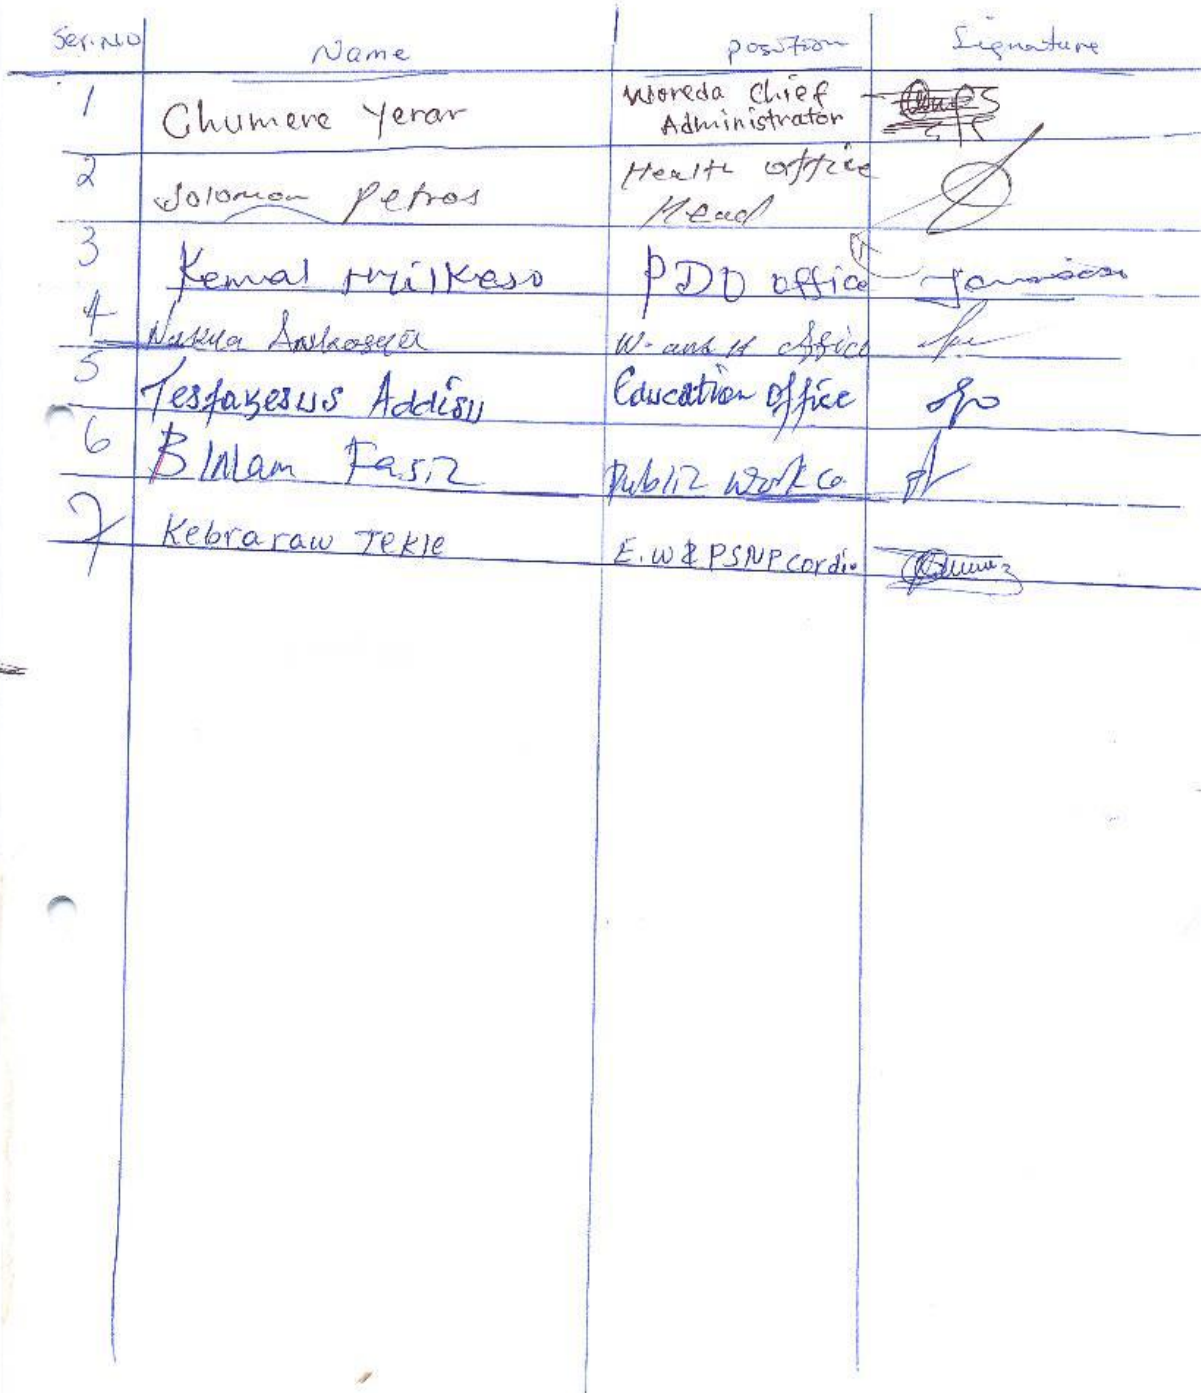 Ser.No Name position Signature
1 Chumere Yerar Woreda Chief Administrator
2 Solomon Petros Health office Head
3 Kemal PDO office
4 W. and office
5 Tesfayesus Addisu Education office
6 Fasiz Public work co.
7 Kebraraw Tekle E.W & PSNP cordi.